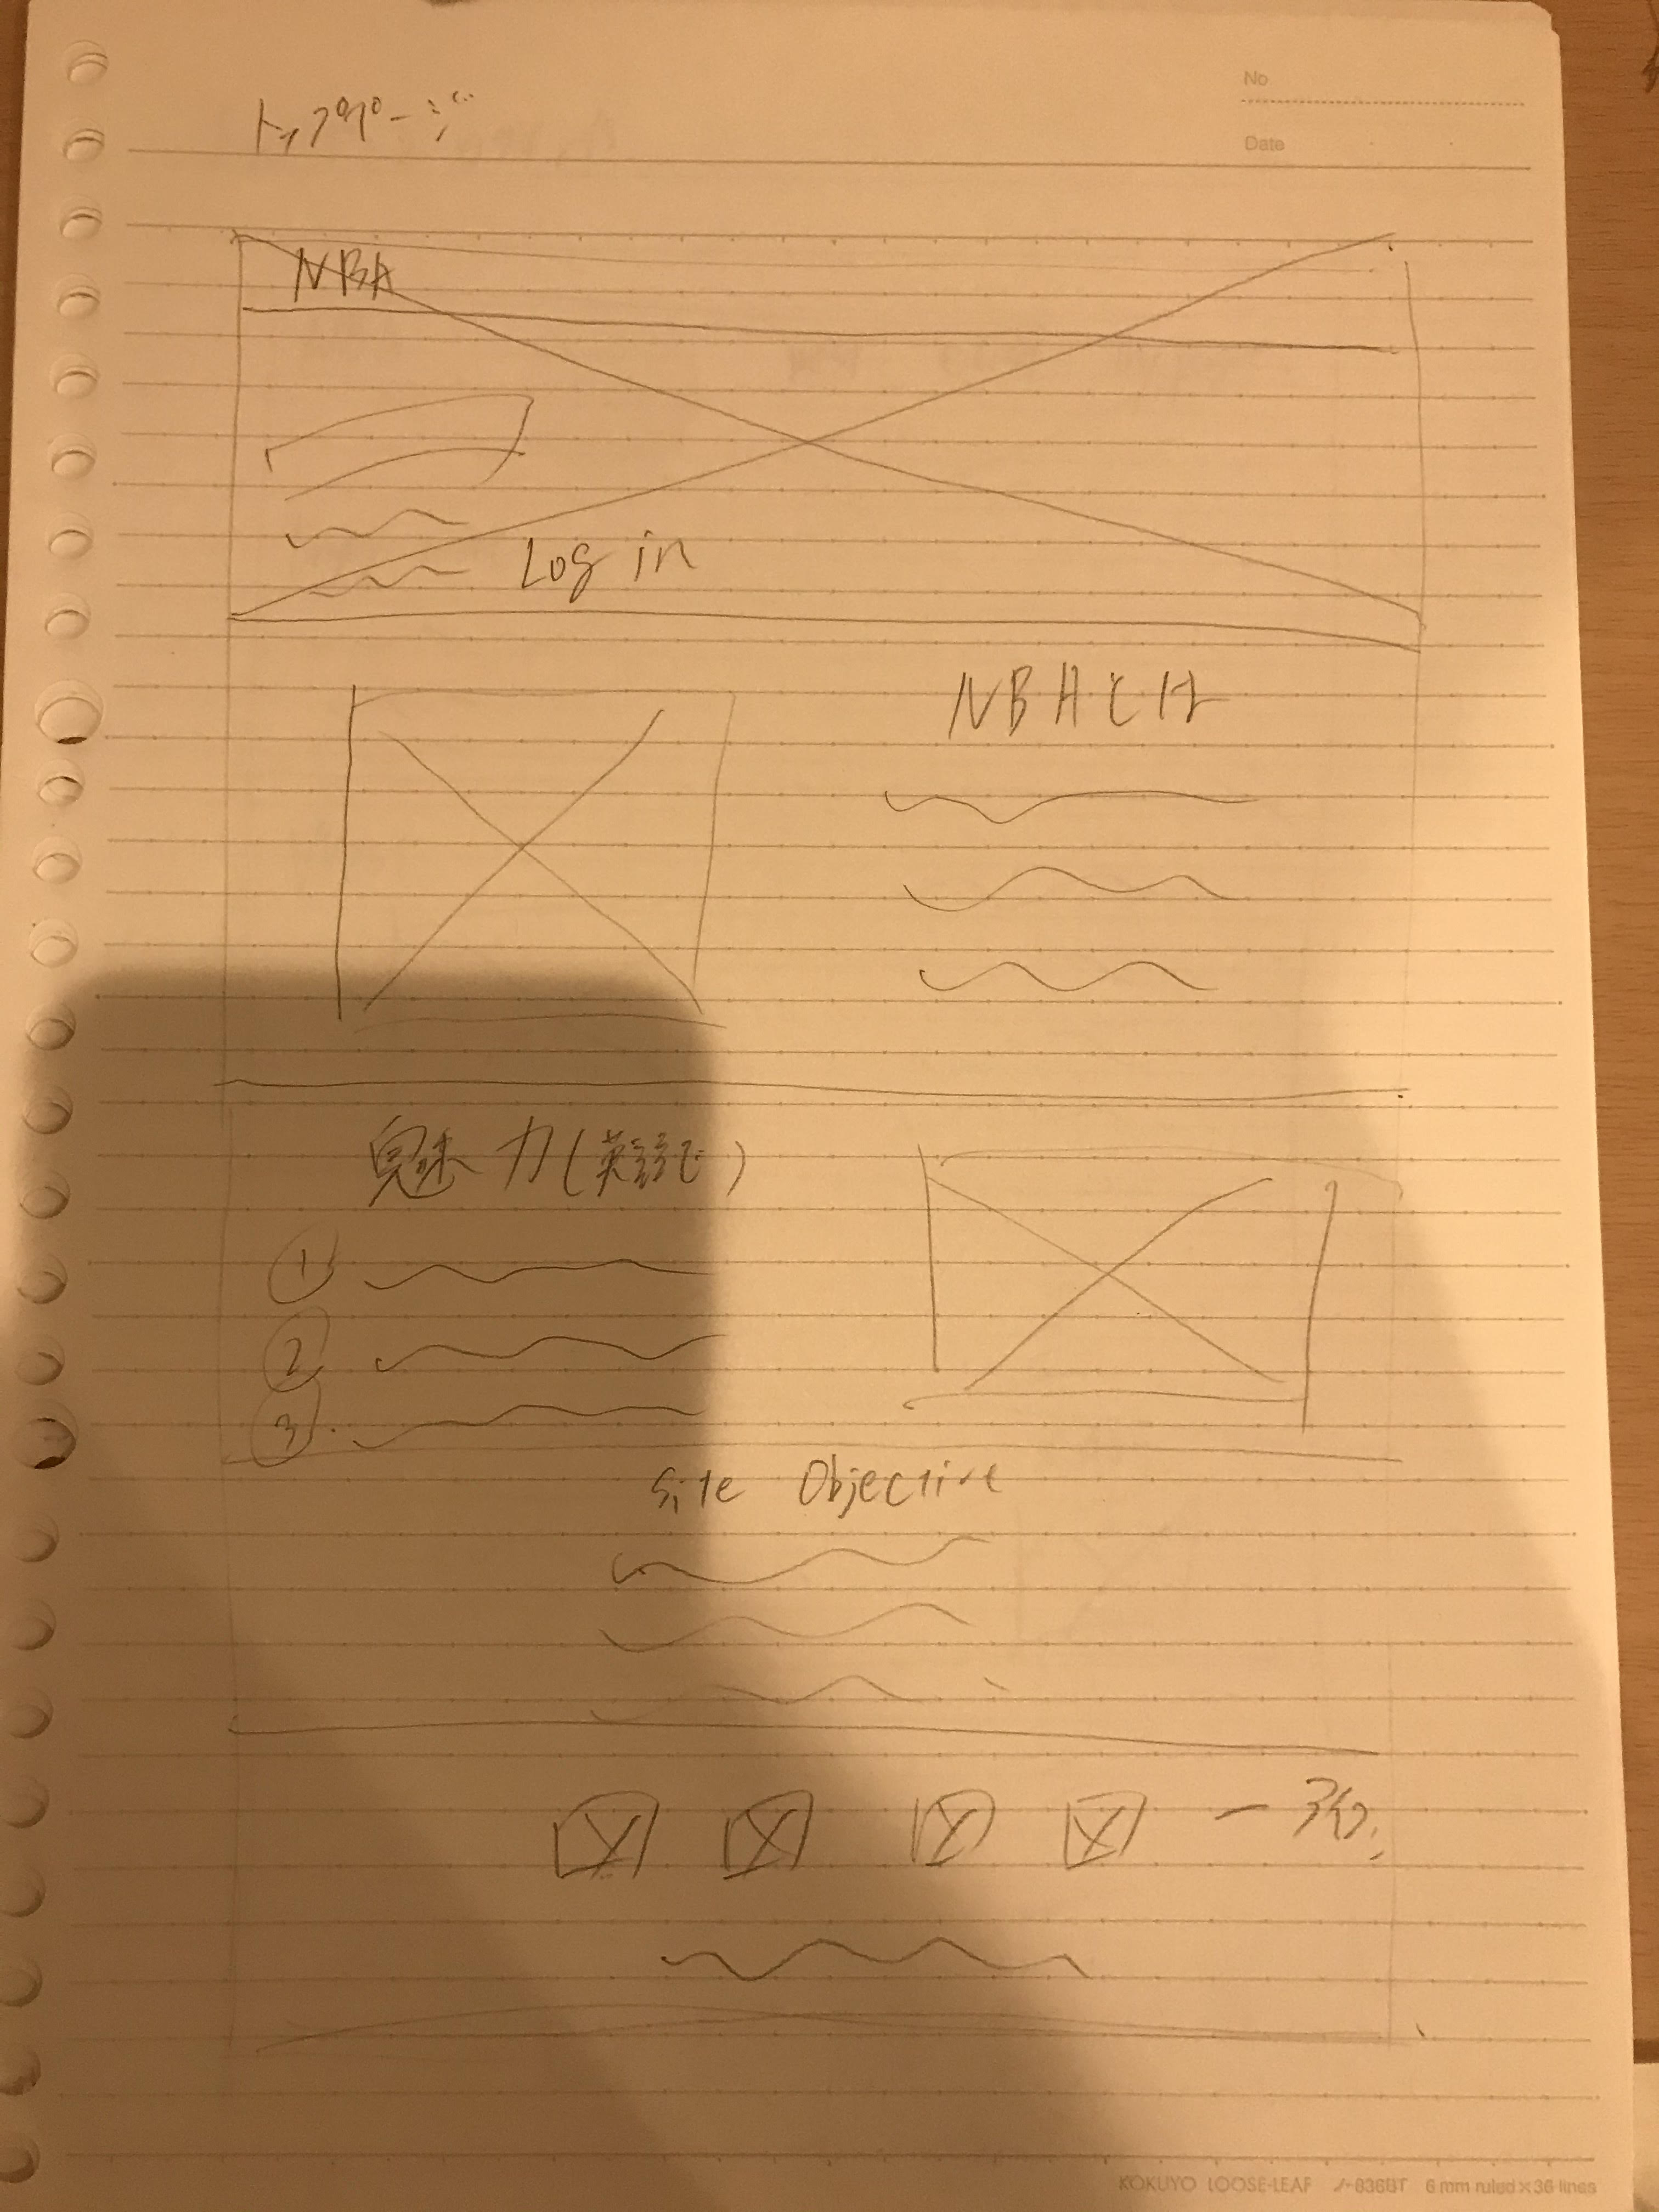 トップページ
No
Date
NBA
Log in
NBAとは
魅力(英語で)
①
②
③
Site Objective
KOKUYO LOOSE-LEAF ノ-836BT 6 mm ruled×36 lines